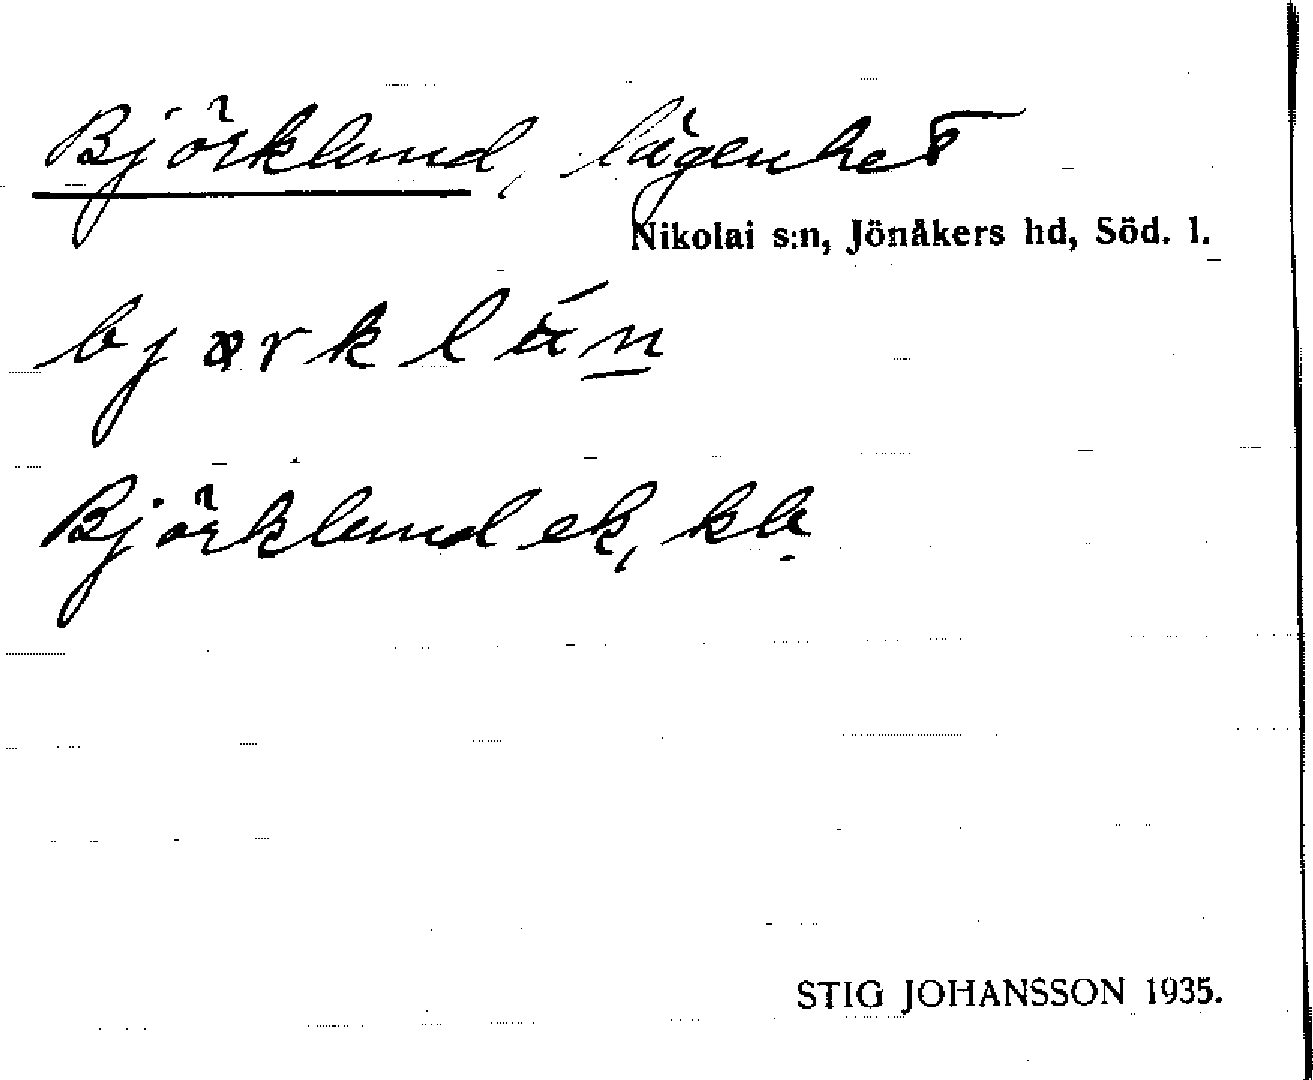 Björklund, lägenhet
Nikolai s:n, Jönåkers hd, Söd. l.
Björklund ek, kb
STIG JOHANSSON 1935.